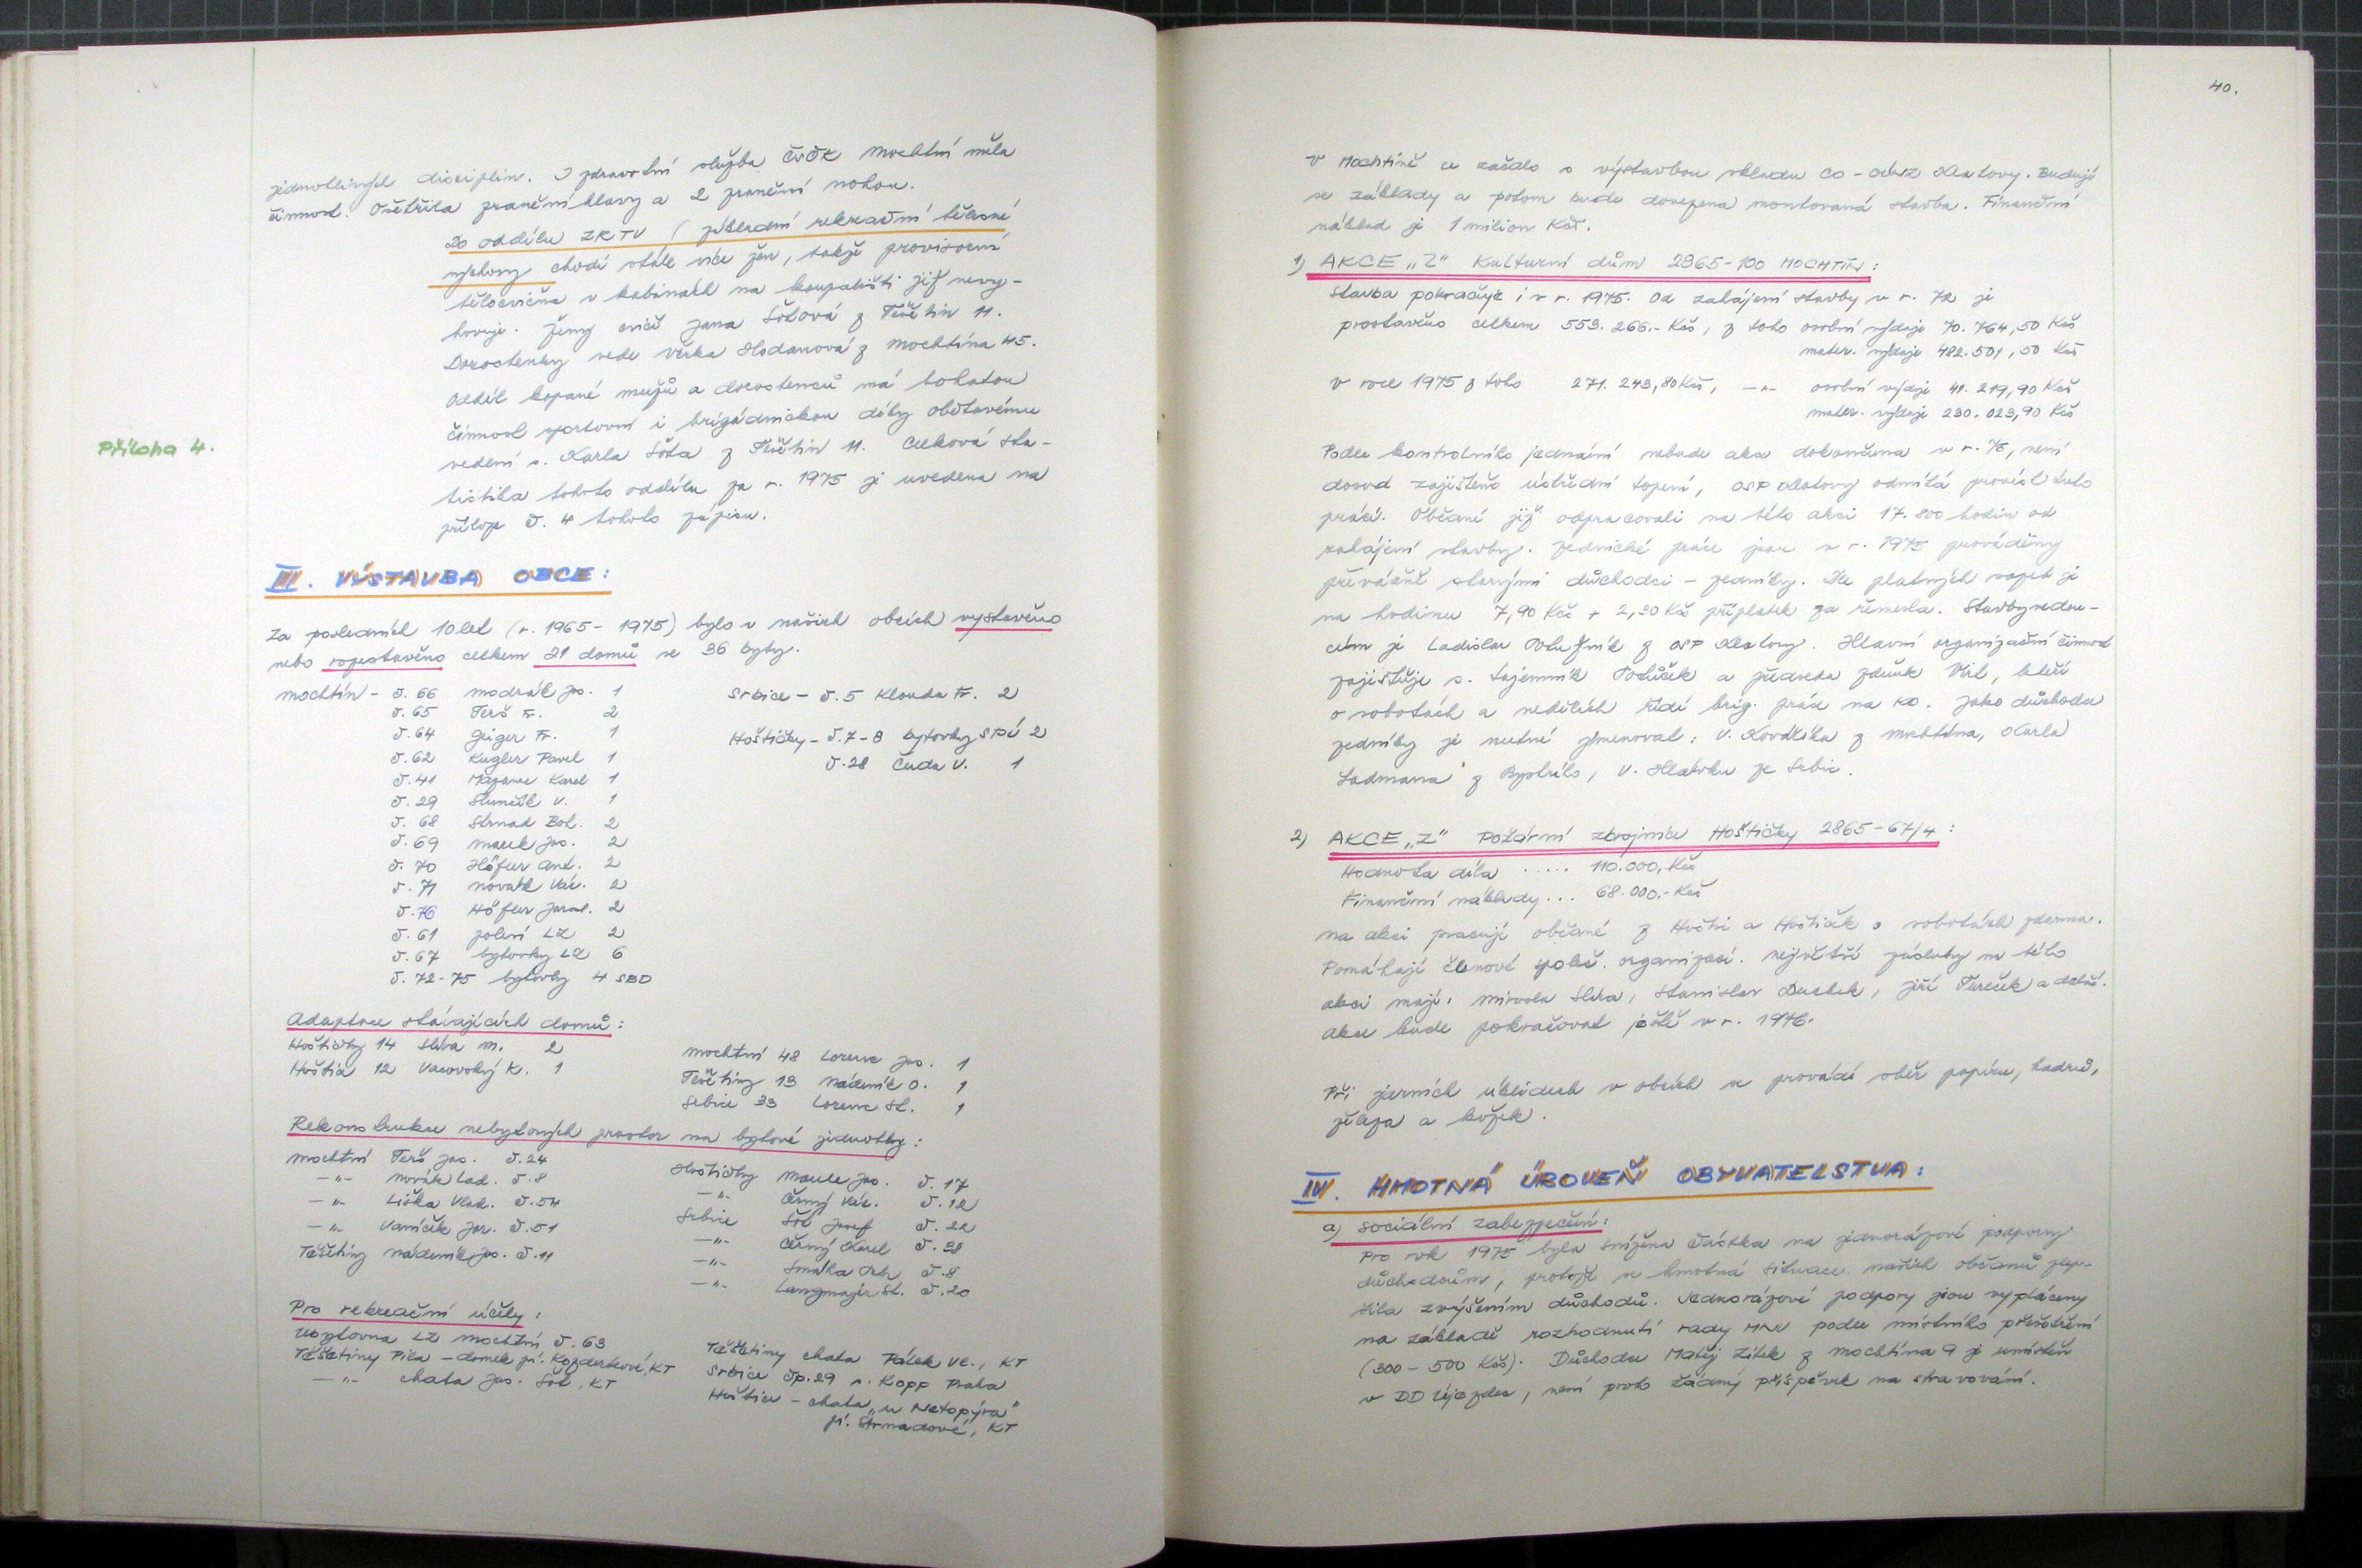 jednotlivých disciplin. I zdravotní služba ČSČK Mochtín měla
činnost. Ošetřila zranění hlavy a 2 zranění nohou.
Do oddílu ZRTV (základní rekreační tělesné
výchovy chodí stále více žen, takže provisorní
tělocvična v kabinách na koupališti již nevy-
hovuje. Ženy cvičí Jana Šotová z Těšetin 11.
Dorostenky vede Věrka Hodanová z Mochtína 45.
Oddíl kopané mužů a dorostenců má bohatou
činnost sportovní i brigádnickou díky obětavému
vedení s. Karla Šota z Těšetin 11. Celková sta-
Příloha 4.
tistika tohoto oddílu za r. 1975 je uvedena na
příloze č. 4 tohoto zápisu.
III. VÝSTAVBA OBCE:
Za posledních 10 let (r. 1965 - 1975) bylo v našich obcích vystavěno
nebo rozestavěno celkem 21 domů se 36 byty.
Mochtín - č. 66 Modrák Jos. 1
č. 65 Terš Fr. 2
č. 64 Geiger Fr. 1
č. 62 Kugler Pavel 1
č. 41 Karel 1
č. 29 V. 1
č. 68 Strnad Boh. 2
č. 69 Marek Jos. 2
č. 70 Höfler Ant. 2
č. 71 Novák Vác. 2
č. 76 Höfler Jarosl. 2
č. 61 polesí LZ 2
č. 67 bytovky LZ 6
č. 72-75 bytovky 4 SBD
Srbice - č. 5 Klouda Fr. 2
Hoštičky - č. 7-8 bytovky 2
č. 28 Čuda V. 1
Adaptace stávajících domů:
Hoštičky 14 Slíva M. 2
Hoštice 12 Vacovský K. 1
Mochtín 48 Lorenc Jos. 1
Těšetiny 13 Nádeník O. 1
Srbice 33 Lorenc St. 1
Rekonstrukce nebytových prostor na bytové jednotky:
Mochtín Terš Jos. č. 24
-"- Novák Lad. č. 8
-"- Liška Vlad. č. 54
-"- Vaníček Jar. č. 51
Těšetiny Nádeník Jos. č. 11
Hoštičky Marek Jos. č. 17
-"- Černý Vác. č. 12
Srbice Šot Josef č. 22
-"- Černý Karel č. 28
-"- č. 8
-"- Langmajer St. č. 20
Pro rekreační účely:
Ubytovna LZ Mochtín č. 63
Těšetiny Pila - domek pí. Kozderkové, KT
-"- chata Jos. Šot, KT
Těšetiny chata Pálek Vl., KT
Srbice čp. 29 s. Kopp Praha
Hoštice - chata „u Netopýra"
pí. Strnadové, KT
40.
V Mochtíně se začalo s výstavbou skladu CO - Klatovy. Budují
se základy a potom bude dovezena montovaná stavba. Finanční
náklad je 1 milion Kčs.
1) AKCE „Z" Kulturní dům 2865-100 MOCHTÍN:
Stavba pokračuje i v r. 1975. Od zahájení stavby v r. 72 je
prostavěno celkem 553.266.- Kčs, z toho osobní výdaje 70.764,50 Kčs
mater. výdaje 482.501,50 Kčs
V roce 1975 z toho 271.243,80 Kčs, -"- osobní výdaje 41.219,90 Kčs
mater. výdaje 230.023,90 Kčs
Podle kontrolního jednání nebude akce dokončena v r. 76, není
dosud zajištěno ústřední topení, OSP Klatovy odmítá provést tuto
práci. Občané již odpracovali na této akci 17.800 hodin od
zahájení stavby. Zednické práce jsou v r. 1975 prováděny
převážně starými důchodci - zedníky. Dle platných sazeb je
na hodinu 7,90 Kčs + 2,30 Kčs příplatek za řemeslo. Stavbyvedou-
cím je Ladislav z OSP Klatovy. Hlavní organizační činnost
zajišťuje s. tajemník Potůček a předseda Zdeněk Vít, kteří
o sobotách a nedělích řídí brig. práce na KD. Jako důchodce
zedníky je nutné jmenovat: V. z Mochtína, Karla
Ladmana z Bystrého, V. Hlávku ze Srbic.
2) AKCE „Z" Požární zbrojnice Hoštičky 2865-67/4:
Hodnota díla ..... 110.000,- Kčs
Finanční náklady ... 68.000.- Kčs
Na akci pracují občané z Hoštic a Hoštiček o sobotách zdarma.
Pomáhají členové společ. organizací. Největší zásluhy na této
akci mají: Slíva, Stanislav Duchek, Jiří Tureček a další.
Akce bude pokračovat ještě v r. 1976.
Při jarních úklidech v obcích se provádí sběr papíru, hadrů,
železa a kožek.
IV. HMOTNÁ ÚROVEŇ OBYVATELSTVA:
a) Sociální zabezpečení:
Pro rok 1975 byla snížena částka na jednorázové podpory
důchodcům, protože se hmotná situace našich občanů zlep-
šila zvýšením důchodů. Jednorázové podpory jsou vypláceny
na základě rozhodnutí rady MNV podle místního přešetření
(300 - 500 Kčs). Důchodce Matěj Zítek z Mochtína 9 je umístěn
v DD Újezdec, není proto žádný příspěvek na stravování.